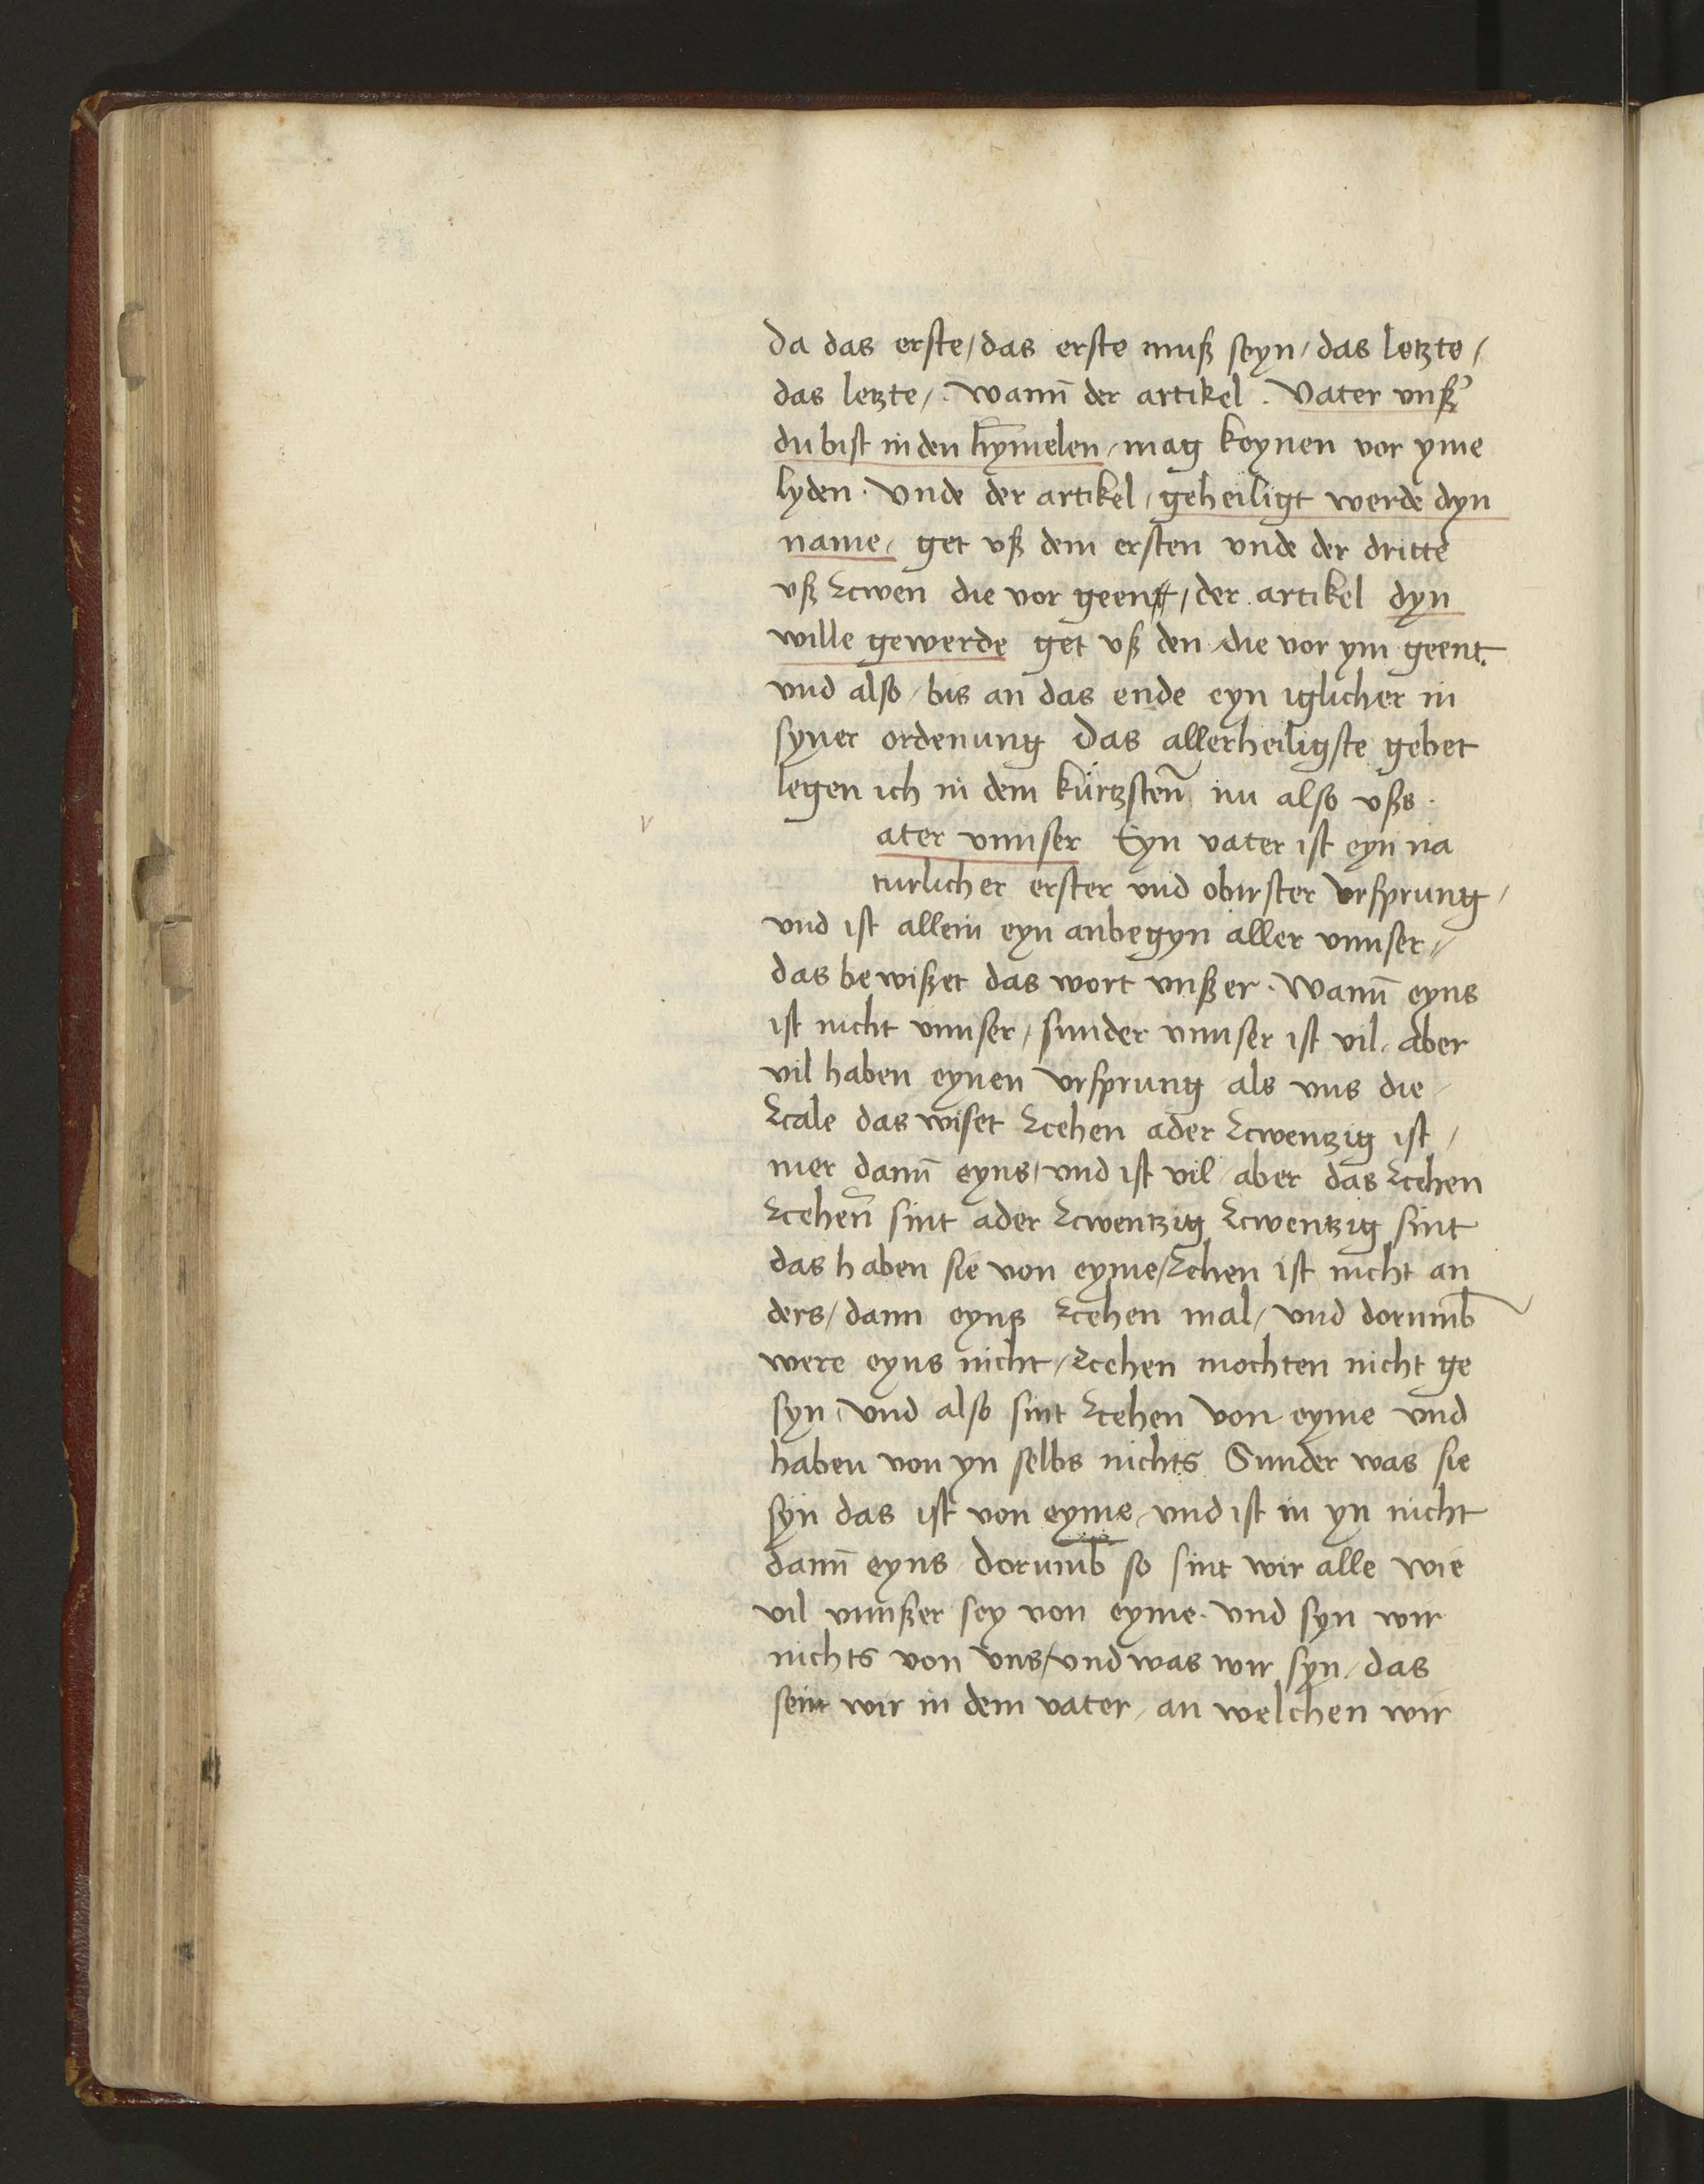 Da das erste / das erste muß seyn / das letzte /
das letzte / . Wann̄ der artikel . Vater unßᷣ
du bist in den hȳmelen / mag keynen vor yme
lyden . Unde der artikel / geheiligt werde dyn
name / get uß dem ersten unde der dritte
uß zcwen die vor geent / der artikel dyn
wille gewerde get uß den die vor ym geent .
und also / bis an das ende eyn iglicher in
syner ordenung Das allerheiligste gebet
legen ich in dem kürtzsten̄ nu also ußs .
v
ater unnser Eyn vater ist eyn na
turlicher erster und obirster ursprung /
und ist allein eyn anbegyn aller unnser /
das bewißet das wort unßer . Wann̄ eyns
ist nicht unnser / sunder unnser ist vil / aber
vil haben eynen ursprung / als uns die /
zcale das wiset zcehen ader zcwentzig ist /
mer dann̄ eyns / und ist vil / aber das zcehen
zcehen̄ sint ader zcwentzig zcwentzig sint
das haben sie von eyme / zcehen ist nicht an
ders / dann eyns zcehen mal / und dorumb̄
were eyns nicht / zcehen mochten nicht ge
syn / Und also sint zcehen von eyme und
haben von yn selbs nichts Sunder was sie
syn das ist von eyme / und ist in yn nicht
dann̄ eyns / dorumb̄ so sint wir alle wie
vil unnßer sey von eyme . und syn wir
nichts von uns / und was wir syn / das
seint wir in dem vater / an welchen wir